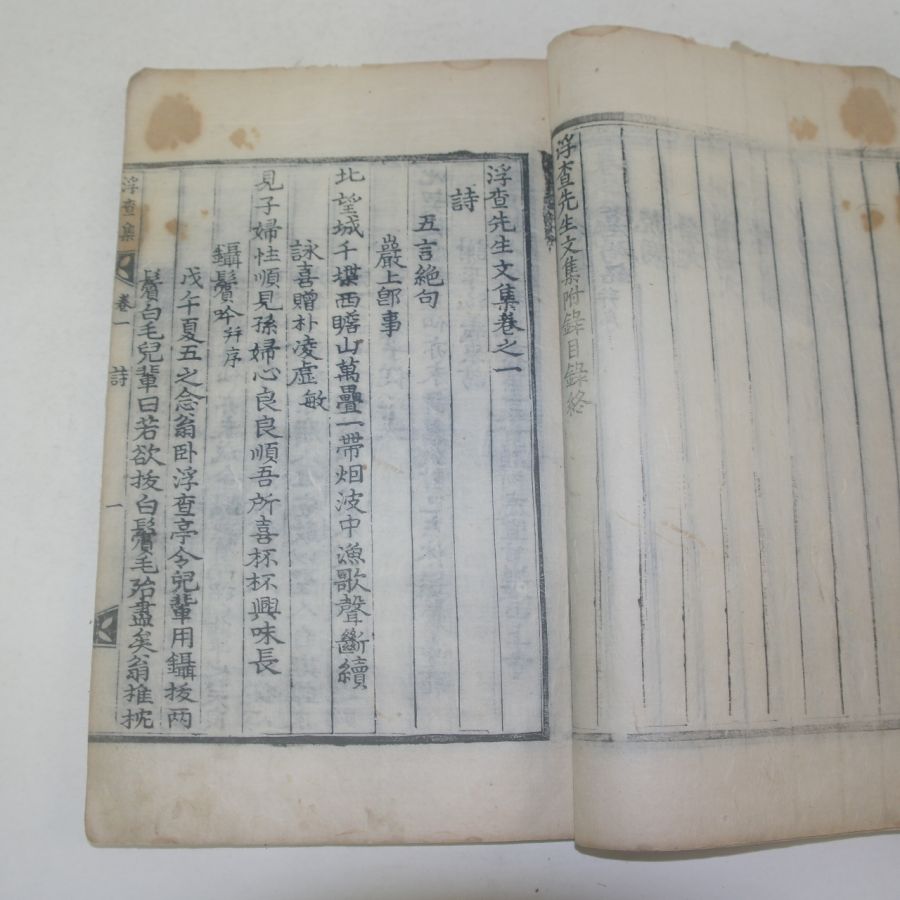 浮査先生文集附錄目錄終
浮査先生文集卷之一
詩
五言絶句
巖上卽事
北望城千堞西瞻山萬疊一帶烟波中漁歌聲斷續
詠喜贈朴凌虛敏
見子婦性順見孫婦心良良順吾所喜杯杯興味長
鑷鬢吟幷序
戊午夏五之念翁卧浮査亭令兒輩用鑷拔两
鬢白毛兒輩曰若欲拔白鬢毛殆盡矣翁推枕
浮査集 卷一 詩 一